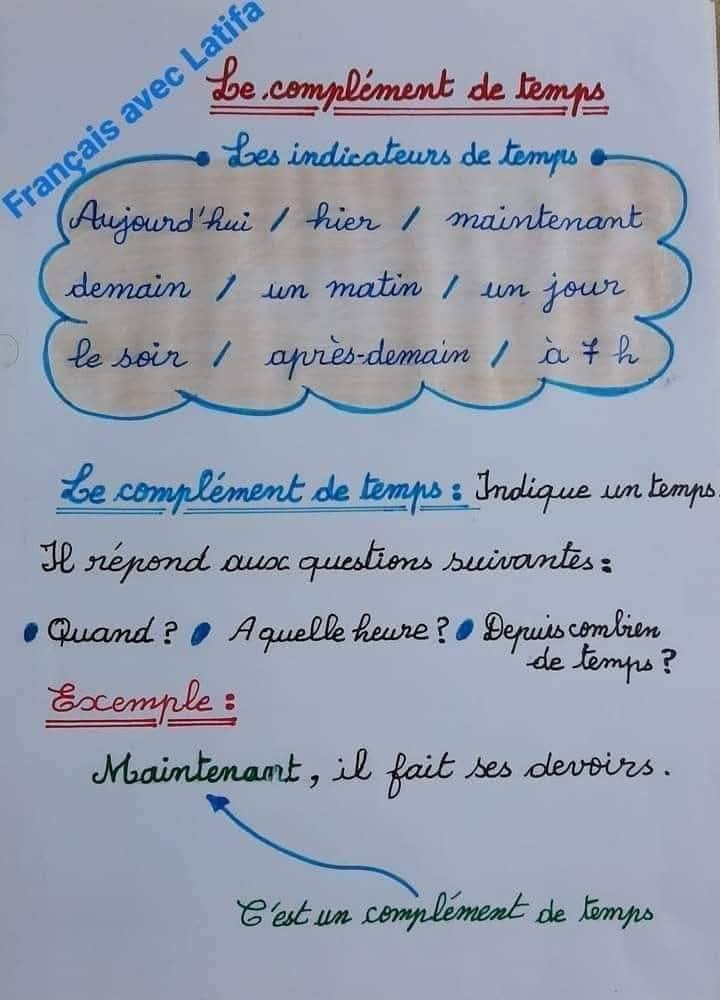 Français avec Latifa
Le complément de temps
Les indicateurs de temps
Aujourd'hui / hier / maintenant
demain / un matin / un jour
le soir / après-demain / à 7 h
Le complément de temps : Indique un temps.
Il répond aux questions suivantes :
• Quand ? • A quelle heure ? • Depuis combien
de temps ?
Exemple :
Maintenant, il fait ses devoirs.
C'est un complément de temps